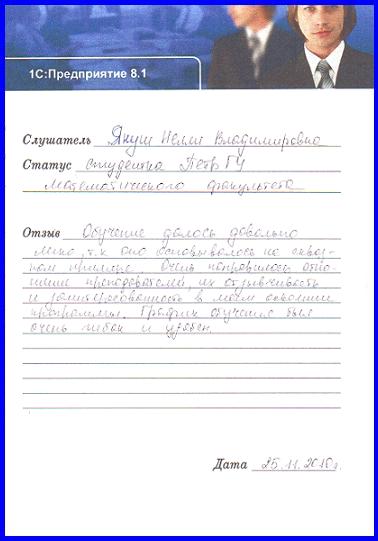 1С:Предприятие 8.1
Слушатель Якуш Нелли Владимировна
Статус студентка ПетрГУ
математического факультета
Отзыв Обучение далось довольно
легко, т.к. оно основывалось на сквоз-
ном примере. Очень понравилось отно-
шение преподователей, их отзывчивость
и заинтересованность в моем освоении
программы. График обучения был
очень гибок и удобен.
Дата 25.11.2010г.